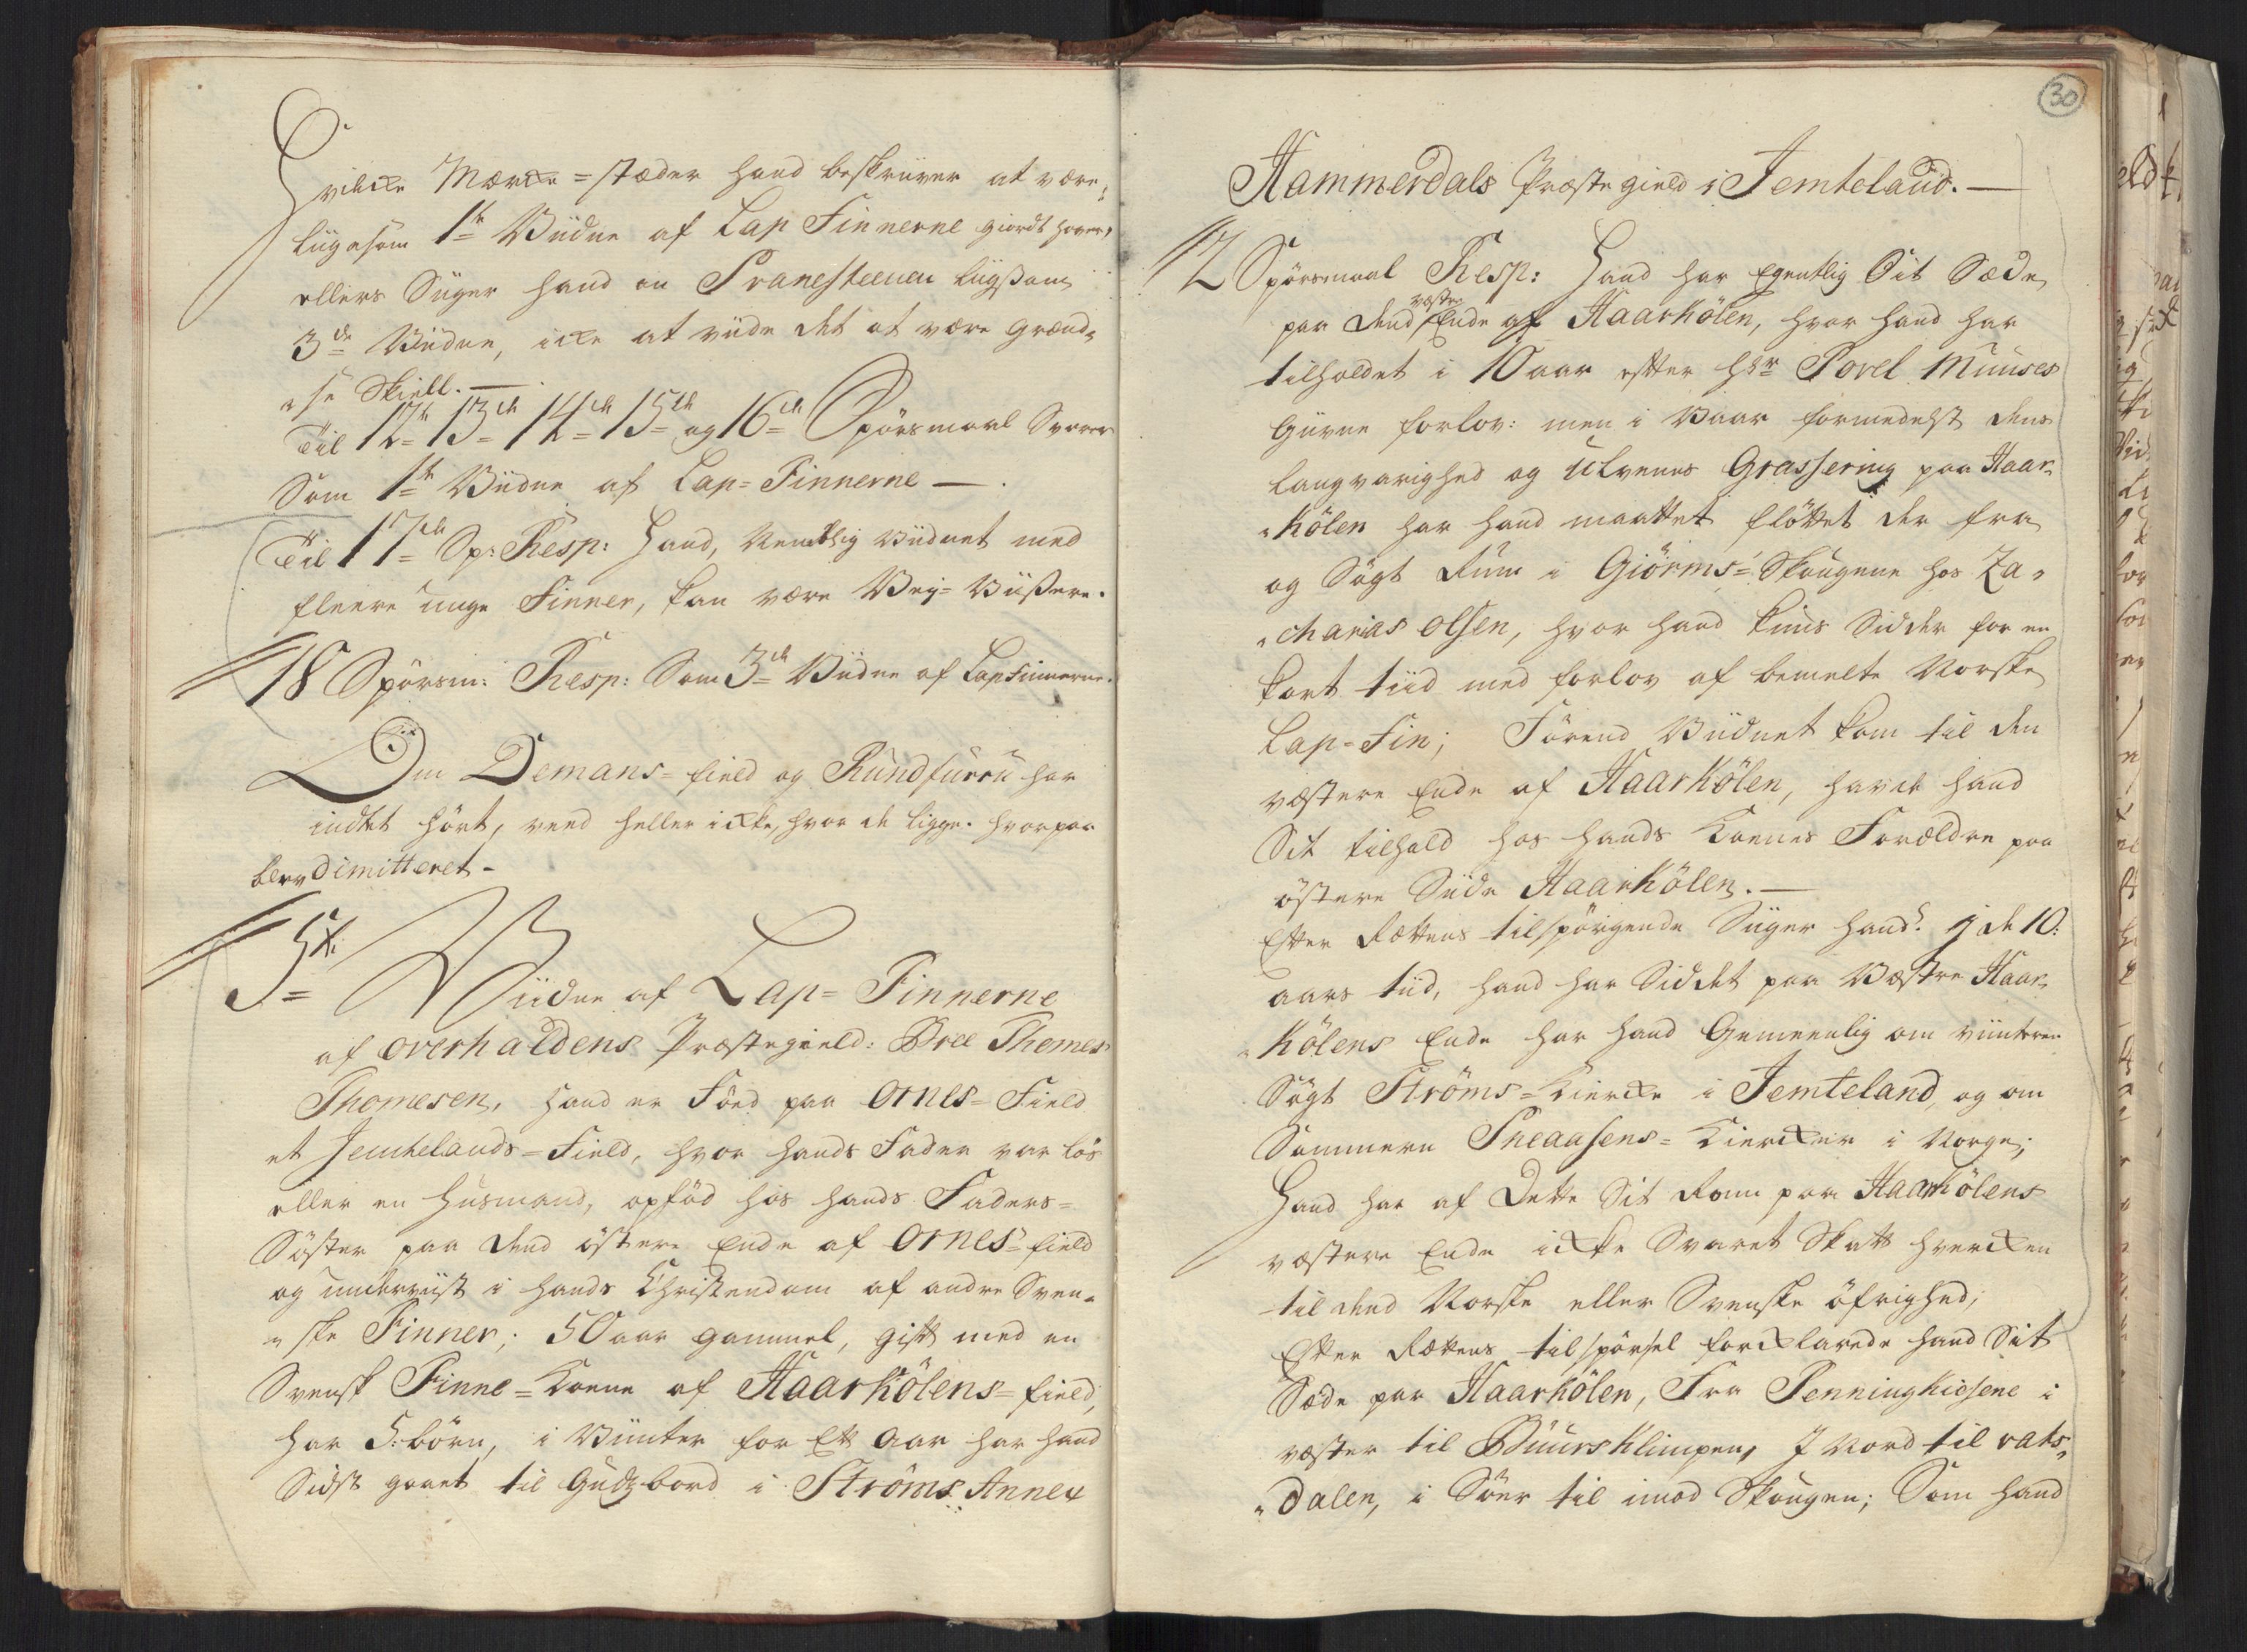 Hvilcke Mærcke=stæder hand beskriiver at være,
liigesom 1te Viidne af Lap Finnerne giordt haver,
ellers Siiger hand om Pranesteenen liigsom
3de Viidne, icke at viide det at være Grænd-
„se Skiell. —
Til 12te 13de 14de 15de og 16de Spörsmaal Svarer
Som 1te Viidne af Lap=Finnerne — .
Til 17de Sp: Resp: Hand, Nemblig Viidnet med
fleere unge Finner, kan være Vey=Viisere.
18 Spörsm: Resp: Som 3de Viidne af Lapfinnerne.
Om Demans=field og Rundfurru har
indtet hört, veed heller icke, hvor de ligge. hvorpaa
blev Dimitteret -
5te Viidne af Lap=Finnerne
af Overhaldens Præstegield: Thomes
Thomesen, hand er Föed paa Ornes=Field
et Jemtelands=Field, hvor hands Fader var lös
eller en huusmand, opföd hos hands Faders=
Söster paa dend östere Ende af Ornes=field
og underviist i hands Christendom af andre Sven-
„ske Finner; 50 aar gammel, gift med en
Svensk Finne=Kone af Haarkölens=field,
har 5. börn, i Viinter for Et Aar har hand
Sidst gaaet til Gudzbord i Ströms Annex
30
Hammerdals Præstegield i Jemteland. —
2 Spörsmaal Resp: Hand har Egentlig Sit Sæde
paa dend væstre Ende af Haarkölen, hvor hand har
tilholdet i 10 aar efter Hr Povel Muuses
Givne forlov: men i Vaar formedelst dens
langvarighed og Ulvenes Grassering paa Haar-
„kölen har hand maattet flöttet der fra
og Sögt Rum i Giörms=Skougene hos Za-
„charias Olsen, hvor hand kuns Sidder for en
kort tiid med forlov af bemelte Norske
Lap=Fin; Förend Viidnet kom til den
væstere Ende af Haarkölen, havde hand
Sit tilhold hos hands Kones Forældre paa
östere Siide Haarkölen. —
Efter Rættens tilspörgende Siiger hand: I de 10.
aars tiid, hand har Siddet paa Væstre Haar-
„kölens Ende har hand Gemeenlig om viinteren
Sögt Ströms=Kiercke i Jemteland, og om
Sommeren Sneaasens=Kiercker i Norge;
Hand har af Dette Sit Rom paa Haarkölens
væstere Ende icke Svaret Skatt hvercken
til dend Norske eller Svenske öfrighed;
Efter Rættens tilspörsel forcklarede hand Sit
Sæde paa Haarkölen, Fra Penningkiesene i
væster til Buursklimpen, I Nord til rats-
„dalen, i Söer til imod Skougen; Som hand